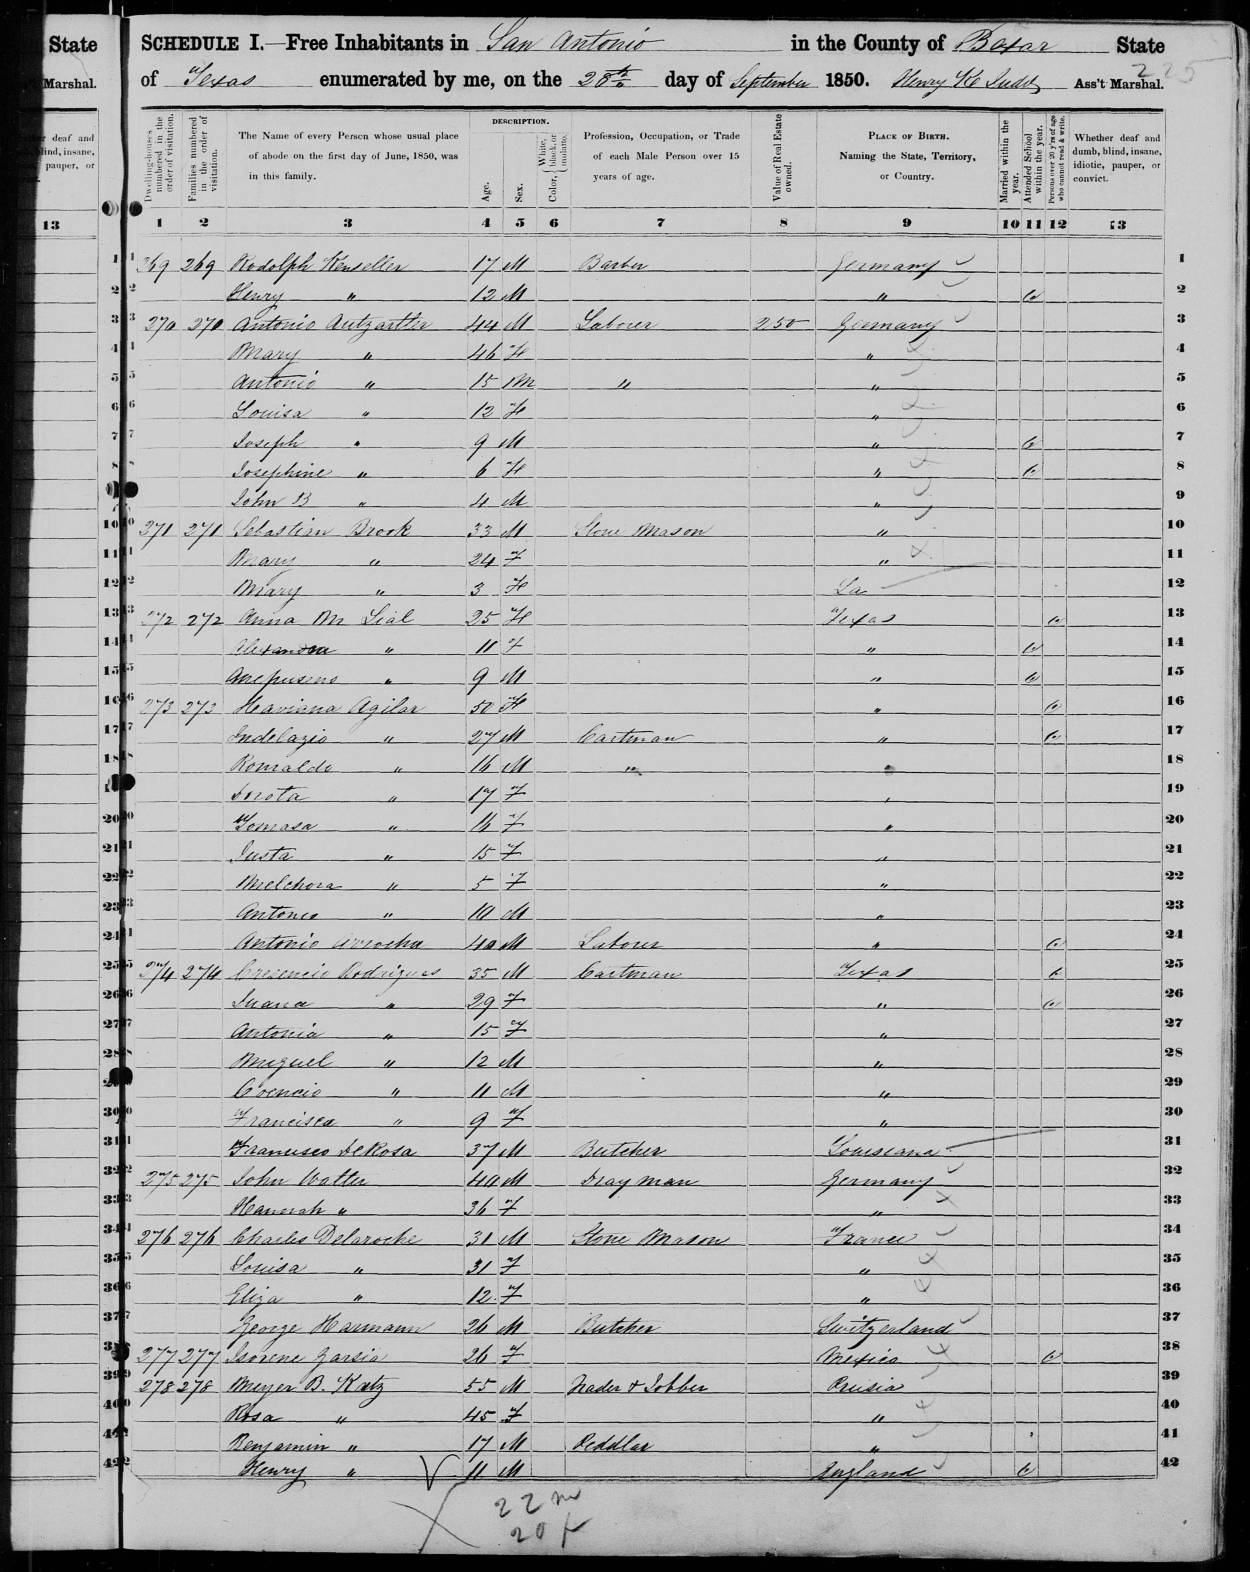 State
Marshal.
deaf and
blind, insane,
pauper, or
13
225
SCHEDULE I.—Free Inhabitants in San Antonio in the County of Bexar State
of Texas enumerated by me, on the 28th day of September 1850. Henry K Judd Ass't Marshal.
Dwelling-houses numbered in the order of visitation.
Families numbered in the order of visitation.
The Name of every Person whose usual place of abode on the first day of June, 1850, was in this family.
DESCRIPTION.
Age.
Sex.
Color, { White, black, or mulatto.
Profession, Occupation, or Trade of each Male Person over 15 years of age.
Value of Real Estate owned.
PLACE OF BIRTH. Naming the State, Territory, or Country.
Married within the year.
Attended School within the year.
Persons over 20 y'rs of age who cannot read & write.
Whether deaf and dumb, blind, insane, idiotic, pauper, or convict.
1 2 3 4 5 6 7 8 9 10 11 12 13
1 269 269 Rodolph Kenseller 17 M Barber Germany 1
2 Henry " 12 M " 2
3 270 270 Antonio Autzartter 44 M Laborer 250 Germany 3
4 Mary " 46 F " 4
5 Antonio " 15 M " " 5
6 Louisa " 12 F " 6
7 Joseph " 9 M " 7
8 Josephine " 6 F " 8
9 John B " 4 M " 9
10 271 271 Sebastian Brook 33 M Stone Mason " 10
11 Mary " 24 F " 11
12 Mary " 3 F La 12
13 272 272 Anna M Leal 25 F Texas 13
14 " 11 F " 14
15 Anepuseno " 9 M " 15
16 273 273 Haviana Agilar 50 F " 16
17 Indelazio " 27 M Cartman " 17
18 Romaldo " 16 M " " 18
19 Dorota " 17 F " 19
20 Tomasa " 16 F " 20
21 Justa " 15 F " 21
22 Melchora " 5 F " 22
23 Antonio " 10 M " 23
24 Antonio Arrocha 40 M Laborer " 24
25 274 274 Cresencio Rodrigues 35 M Cartman Texas 25
26 Juana " 29 F " 26
27 Antonia " 15 F " 27
28 Miguel " 12 M " 28
29 Coencio " 11 M " 29
30 Francisca " 9 F " 30
31 Francisco DeRosa 37 M Butcher Louisiana 31
32 275 275 John Walter 40 M Drayman Germany 32
33 Hannah " 36 F " 33
34 276 276 Charles Delaroche 31 M Stone Mason France 34
35 Louisa " 31 F " 35
36 Eliza " 12 F " 36
37 George Harmann 26 M Butcher Switzerland 37
38 277 277 Isorene Garsia 26 F Mexico 38
39 278 278 Meyer B. Katz 55 M Trader & Jobber Prusia 39
40 Rosa " 45 F " 40
41 Benjamin " 17 M Peddlar " 41
42 Henry " 11 M England 42
22 m
20 f